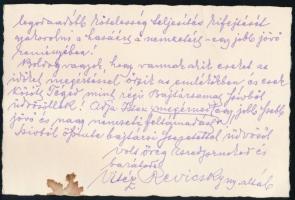 legodaadóbb kötelesség teljesítés kifejtését
gyakorolni a hazáért a nemzetért - egy jobb jövő
reményében!
Boldog vagyok, hogy vannak akik ezeket az
időket megértéssel őrzik az emlékükben és ezek
között Téged mint régi Bajtársamat szívből
üdvözöllek! Adja Isten megérned egy jobb szebb
jövő és nagy nemzeti feltámadást!
Szívből ölelve bajtársi szeretettel üdvözöl
volt öreg ezredparancsnokod és
barátod
Vitéz Reviczky ny. altáb.